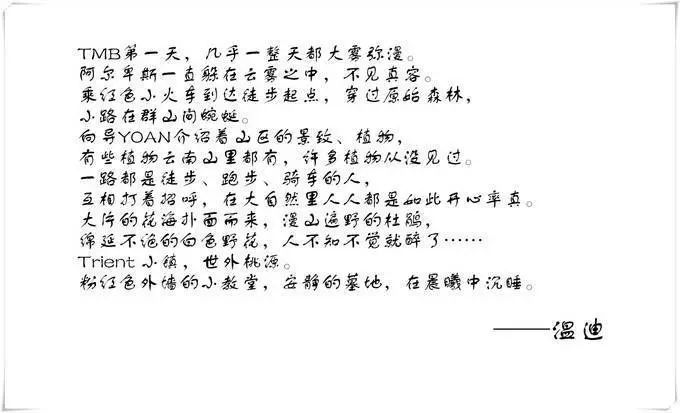 TMB第一天，几乎一整天都大雾弥漫。
阿尔卑斯一直躲在云雾之中，不见真容。
乘红色小火车到达徒步起点，穿过原始森林，
小路在群山间蜿蜒。
向导YOAN介绍着山区的景致、植物，
有些植物云南山里都有，许多植物从没见过。
一路都是徒步、跑步、骑车的人，
互相打着招呼，在大自然里人人都是如此开心率真。
大片的花海扑面而来，漫山遍野的杜鹃，
绵延不绝的白色野花，人不知不觉就醉了……
Trient小镇，世外桃源。
粉红色外墙的小教堂，安静的墓地，在晨曦中沉睡。
——温迪